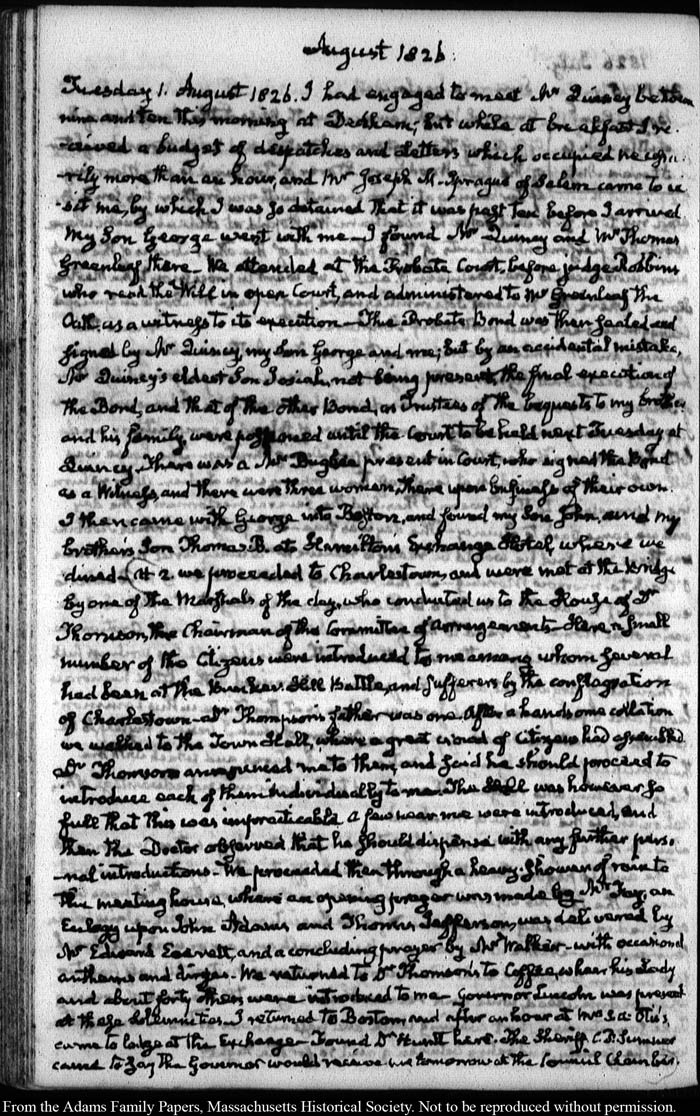 August 1826.
Tuesday 1. August 1826. I had engaged to meet Mr Quincy between
nine and ten this morning at Dedham; but while at breakfast I re-
-ceived a budget of despatches and Letters which occupied necessa-
-rily more than an hour, and Mr Joseph Sprague of Salem came to vi-
-sit me, by which I was so detained that it was past ten before I arrived.
My Son George went with me—I found Mr Quincy and Mr Thomas
Greenleaf there—We attended at the Probate Court, before judge Robbins
who read the Will in open Court, and administered to Mr Greenleaf the
Oath, as a witness to its execution—The Probate Bond was then sealed and
signed by Mr Quincy, my Son George and me; but by an accidental mistake,
Mr Quincy's eldest Son Josiah, not being present, the final execution of
the Bond, and that of the other Bond, as Trustees of the bequests to my brother
and his family, were postponed until the Court to be held next Tuesday at
Quincy—There was a Mr present in Court, who signed the Bond
as a Witness, and there were three women, there upon business of their own.
I then came with George into Boston, and found my Son John, and my
brother's Son Thomas B. at Hamilton's Exchange Hotel, where we
dined—At 2. we proceeded to Charlestown, and were met at the bridge
by one of the Marshals of the day, who conducted us to the House of Dr
Thomson, the Chairman of the Committee of Arrangements—Here a small
number of the Citizens were introduced to me among whom several
had been at the Bunker Hill Battle, and sufferers by the conflagration
of Charlestown—Dr Thompson's father was one. After a handsome collation
we walked to the Town Hall, where a great crowd of Citizens had assembled.
Dr Thomson announced me to them, and said he should proceed to
introduce each of them individually to me. The Hall was however so
full that this was impracticable. A few near me were introduced, and
then the Doctor observed that he should dispense with any further perso-
-nal introductions—We proceeded then through a heavy shower of rain to
the meeting house, where an opening prayer was made by Mr Fay, an
Eulogy upon John Adams and Thomas Jefferson, was delivered by
Mr Edward Everett, and a concluding prayer by Mr Walker—with occasional
anthems and dirges—We returned to Dr Thomson's to Coffee, where his Lady
and about forty others were introduced to me—Governor Lincoln was present
at these solemnities—I returned to Boston, and after an hour at Mrs S. A. Otis's,
came to lodge at the Exchange—Found Dr Huntt here. The Sheriff C. P. Sumner
came to say the Governor would receive me tomorrow at the Council Chamber.
From the Adams Family Papers, Massachusetts Historical Society. Not to be reproduced without permission.